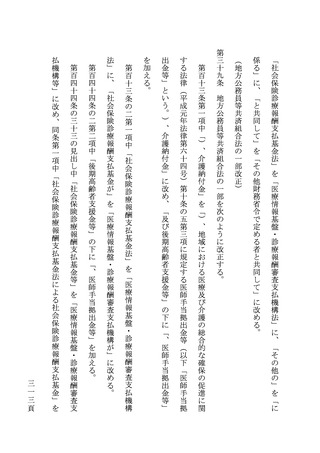 「社会保険診療報酬支払基金法」を「医療情報基盤・診療報酬審査支払機構法」に、「その他の」を「に
係る」に、「と共同して」を「その他財務省令で定める者と共同して」に改める。
（地方公務員等共済組合法の一部改正）
第三十九条　地方公務員等共済組合法の一部を次のように改正する。
第百十三条第一項中「）、介護納付金」を「）、地域における医療及び介護の総合的な確保の促進に関
する法律（平成元年法律第六十四号）第十条の五第三項に規定する医師手当拠出金等（以下「医師手当拠
出金等」という。）、介護納付金」に改め、「及び後期高齢者支援金等」の下に「、医師手当拠出金等」
を加える。
第百十三条の二第一項中「社会保険診療報酬支払基金法」を「医療情報基盤・診療報酬審査支払機構
法」に、「社会保険診療報酬支払基金が」を「医療情報基盤・診療報酬審査支払機構が」に改める。
第百十四条の二第二項中「後期高齢者支援金等」の下に「、医師手当拠出金等」を加える。
第百四十四条の三十三の見出し中「社会保険診療報酬支払基金等」を「医療情報基盤・診療報酬審査支
払機構等」に改め、同条第一項中「社会保険診療報酬支払基金法による社会保険診療報酬支払基金」を
三一三頁